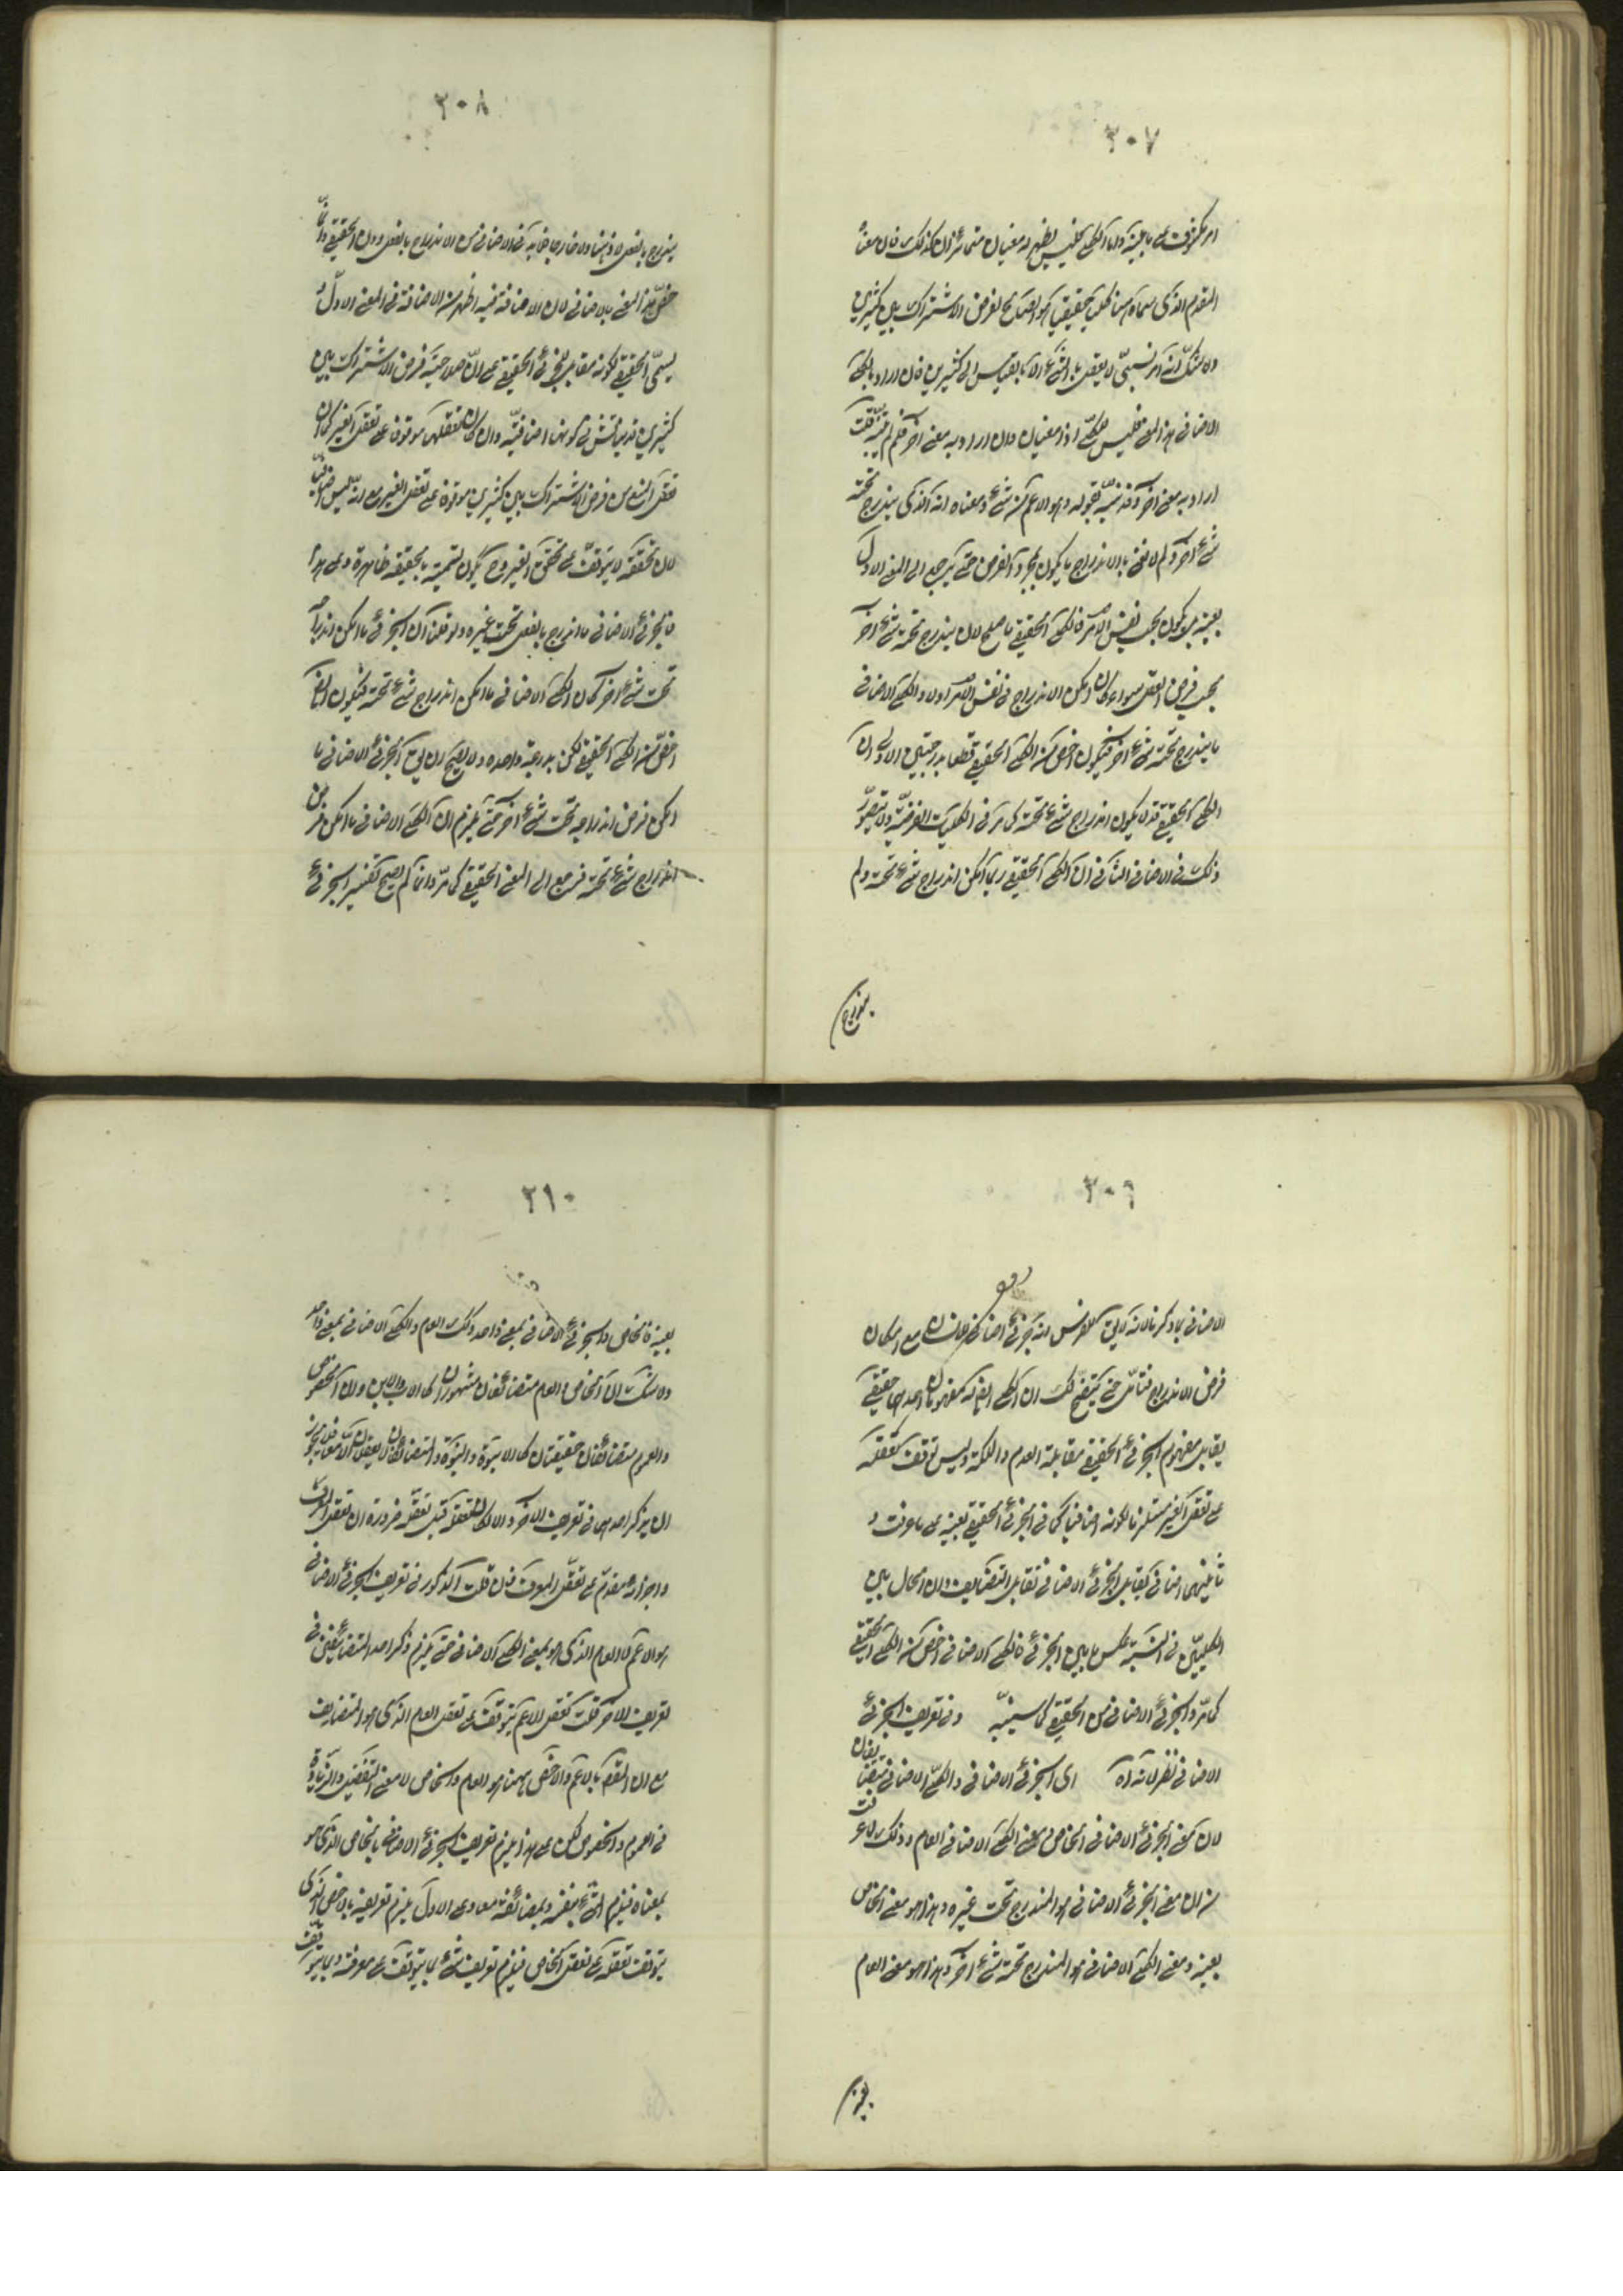 ٣٠٧
المقدم الذي سماه ههنا كليا حقيقيا هو الصالح لفرض الاشتراك بين كثيرين
ولا شك انه امر نسبي لا يعقل بالشيء الا بالقياس الى كثيرين فان اراد بالكلي
الاضافي هذا المعنى فليس للكلي اذا معنيان وان اراد به معنى آخر فلم لم يبينه قلت
اراد به معنى آخر وقد نبه بقوله وهو الاعم من شيء ومعناه انه الذي يندرج تحته
شيء آخر ولم لا نعني بالاندراج ما يكون بمجرد الفرض حتى يرجع الى المعنى الاول
بعينه بل يكون بحسب نفس الامر فالكلي الحقيقي ما صلح لان يندرج تحته شيء آخر
بحسب فرض العقل سواء كان امكن الاندراج في نفس الامر او لا والكلي الاضافي
ما يندرج تحته شيء آخر فيكون اخص من الكلي الحقيقي قطعا بدرجتين الاولى ان
الكلي الحقيقي قد لا يمكن اندراج شيء تحته كما مر في الكليات الفرضية ولا يتصور
ذلك في الاضافي الثانية ان الكلي الحقيقي ربما امكن اندراج شيء تحته ولم
يندرج
٣٠٨
يندرج بالفعل لا ذهنا ولا خارجا ولا بد في الاضافي من الاندراج بالفعل
خص هذا المعنى بالاضافي لان الاضافة فيه اظهر من الاضافة في المعنى الاول و
يسمى الحقيقي لكونه مقابل للجزئي الحقيقي على ان صلاحية فرض الاشتراك بين
كثيرين قد يناقش في كونها اضافية وان كان تعقلها موقوفا على تعقل الغير كما ان
تعقل المنع من فرض الاشتراك بين كثيرين موقوف على تعقل الغير مع انه ليس اضافيا
لان تحققه لا يتوقف على تحقق الغير وح يكون تسميته بالحقيقي ظاهرة وعلى هذا
فالجزئي الاضافي ما اندرج بالفعل تحت غيره ولو قلنا ان الجزئي ما امكن اندراجه
تحت شيء آخر كان الكلي الاضافي ما امكن اندراج شيء تحته فيكون ايضا
اخص من الكلي الحقيقي لكن بدرجة واحدة ولا يصح ان يق الجزئي الاضافي ما
امكن فرض اندراجه تحت شيء آخر حتى يلزم ان الكلي الاضافي ما امكن فرض
اندراج شيء تحته فيرجع الى المعنى الحقيقي كما مر وانما لم يصح تفسير الجزئي
٣٠٩
فرض الاندراج فتأمل حتى يتضح لك ان الكلي ايضا له مفهومان احدهما حقيقي
يقابل مفهوم الجزئي الحقيقي مقابلة العدم والملكة وليس توقف تعقله
على تعقل الغير مستلزما لكونه اضافيا كما في الجزئي الحقيقي بعينه على ما عرفت و
ثانيهما اضافي يقابل الجزئي الاضافي تقابل التضايف وان الحال بين
الكليين في النسبة عكس ما بين الجزئي فالكلي الاضافي اخص من الكلي الحقيقي
كما مر والجزئي الاضافي من الحقيقي كما سينبه وفي تعريف الجزئي
الاضافي نظر لانه آه اي الجزئي الاضافي والكلي الاضافي متضايفان
لان معنى الجزئي الاضافي الخاص ومعنى الكلي الاضافي العام وذلك لما عرفت
من ان معنى الجزئي الاضافي هو المندرج تحت غيره وهذا هو معنى الخاص
بعينه ومعنى الكلي الاضافي هو المندرج تحته شيء آخر وهذا هو معنى العام
بعينه
٣١٠
بعينه فالخاص والجزئي الاضافي بمعنى واحد وكذلك العام والكلي الاضافي بمعنى واحد
ولا شك ان الخاص والعام متضائفان مشهوران كالاب والابن وان الخصوص
والعموم متضائفان حقيقيان كالابوة والبنوة والمتضائفان لا يعقلان الا معا فلا يجوز
ان يذكر احدهما في تعريف الآخر والا لكان تعقله قبل تعقله ضرورة ان تعقل المعرف
واجزائه مقدم على تعقل المعرف فان قلت المذكور في تعريف الجزئي الاضافي
هو الاعم لا العام الذي هو بمعنى الكلي الاضافي حتى يلزم ذكر احد المتضائفين في
تعريف الآخر قلت تعقل الاعم يتوقف على تعقل العام الذي هو المتضايف
مع ان المفهوم بالاعم والاخص ههنا هو العام والخاص لا معنى التفضيل والزيادة
في العموم والخصوص لكن على هذا يلزم تعريف الجزئي الاضافي بالخاص الذي هو
بمعناه فيلزم الشيء بنفسه وبمضائفه معا وعلى الاول يلزم تعريفه بالاخص الذي
يتوقف تعقله على تعقل الخاص فيلزم تعريف الشيء بما يتوقف على معرفته وبما يتوقف